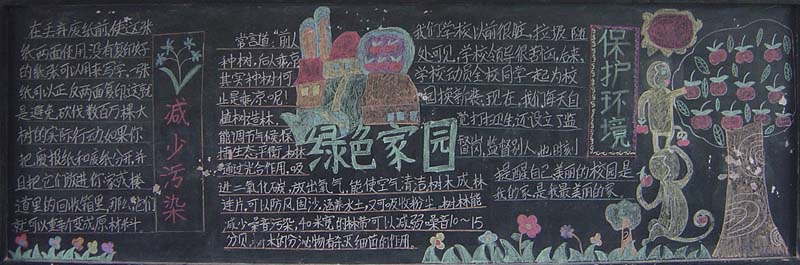 在丢弃废纸前,使这张
纸两面使用,没有复印好
的纸张可以用来写字,一张
纸可以正反两面复印,这就
是避免砍伐数百万棵大
树的实际行动如果你
把废报纸和废纸分开,并
且把它们放进你家或楼
道里的回收箱里,那么它们
就可以重新变成原材料
减少污染
常言道:"前人
种树,后人乘凉
其实种树何
止是乘凉呢!
植树造林,
能调节气候保
持生态平衡,树林
通过光合作用,吸
进二氧化碳,放出氧气,能使空气清洁树木成林
连片,可以防风固沙,涵养水土,又可吸收粉尘,树林能
减少噪音污染,40米宽的林带可以减弱噪音10~15
分贝,树木的分泌物有杀灭细菌的作用。
绿色家园
我们学校以前很脏,垃圾随
处可见,学校领导很苦恼,后来,
学校动员全校同学一起为校
园换新装,现在,我们每天自
觉打扫卫生,还设了监
督岗,监督别人,也时刻
提醒自己美丽的校园是
我的家,是我最美丽的家
保护环境